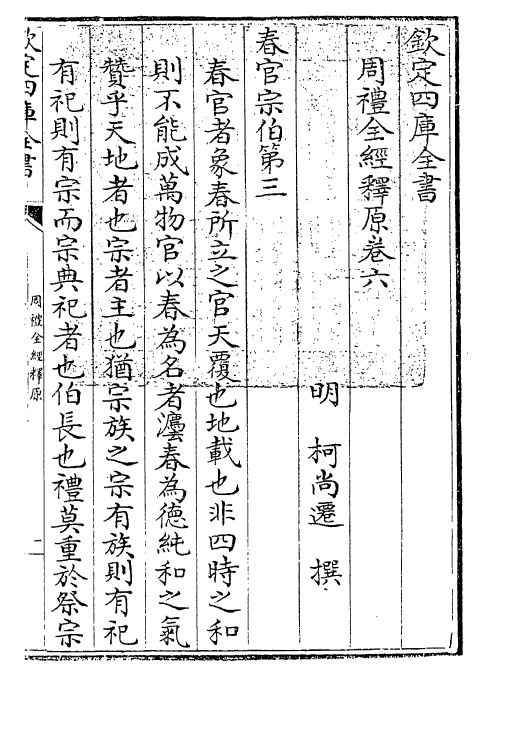 欽定四庫全書
周禮全經釋原卷六
明 柯尚遷 撰
春官宗伯第三
春官者象春所立之官天覆也地載也非四時之和
則不能成萬物官以春為名者灋春為德純和之氣
贊乎天地者也宗者主也猶宗族之宗有族則有祀
有祀則有宗而宗典祀者也伯長也禮莫重於祭宗
欽定四庫全書
周禮全經釋原